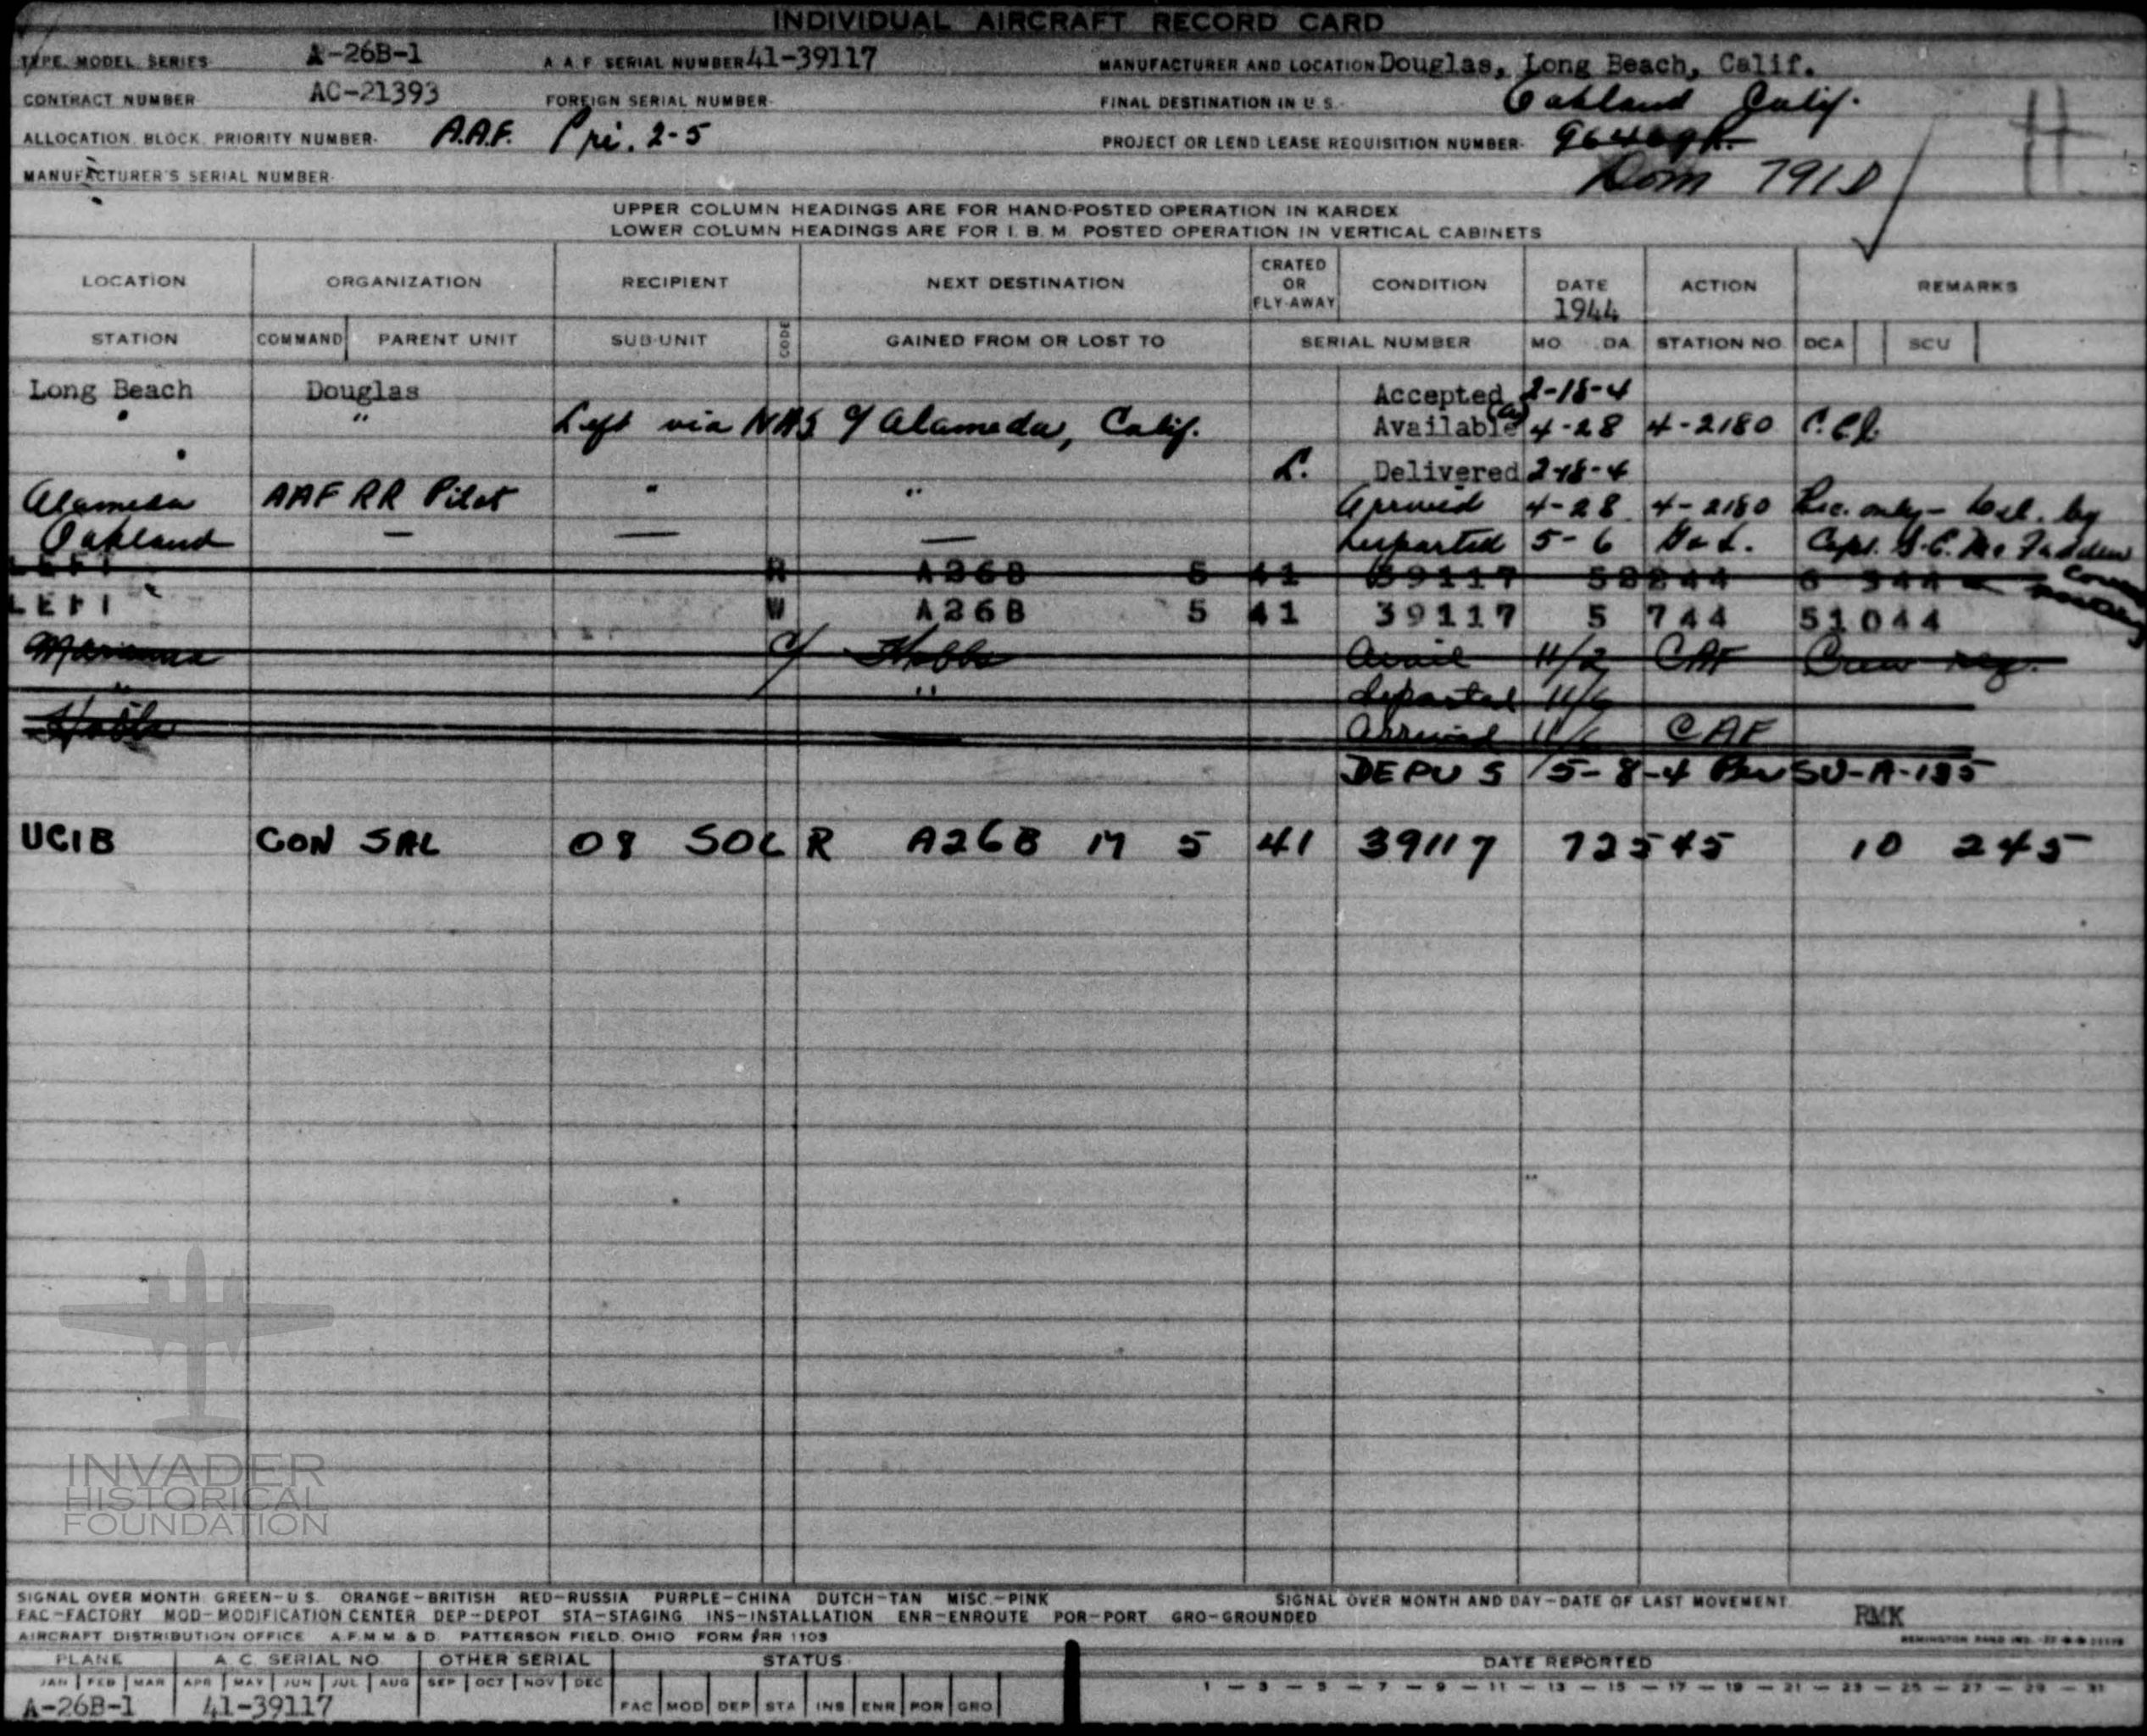 INDIVIDUAL AIRCRAFT RECORD CARD
TYPE, MODEL, SERIES A-26B-1 A.A.F. SERIAL NUMBER 41-39117 MANUFACTURER AND LOCATION Douglas, Long Beach, Calif.
CONTRACT NUMBER AC-21393 FOREIGN SERIAL NUMBER- FINAL DESTINATION IN U.S.- Oakland Calif.
ALLOCATION, BLOCK, PRIORITY NUMBER- A.A.F. Pri. 2-5 PROJECT OR LEND LEASE REQUISITION NUMBER-
MANUFACTURER'S SERIAL NUMBER- Dom 791D
UPPER COLUMN HEADINGS ARE FOR HAND-POSTED OPERATION IN KARDEX
LOWER COLUMN HEADINGS ARE FOR I. B. M. POSTED OPERATION IN VERTICAL CABINETS
LOCATION ORGANIZATION RECIPIENT NEXT DESTINATION CRATED OR FLY-AWAY CONDITION DATE 1944 ACTION REMARKS
STATION COMMAND PARENT UNIT SUB-UNIT CODE GAINED FROM OR LOST TO SERIAL NUMBER MO. DA. STATION NO. DCA SCU
Long Beach Douglas Accepted 2-18-4
" " Left via NAS c/ Alameda, Calif. Available 4-28 4-2180
" L. Delivered 2-18-4
Alameda AAF RR Pilot " " Arrived 4-28 4-2180 Rec. only - by
Oakland — — — Departed 5-6 Capt. McFadden
LEFT R A26B 5 41 39117 52844 6 344
LEFT W A26B 5 41 39117 5 744 51044
Marianna c/ Hobbs Avail 11/2 CAF Crew
" " departed 11/6
Hobbs — Arrived 11/6 CAF
DEPUS 5-8-4 Per SU-A-135
UCIB CON SAL 08 SOL R A26B M 5 41 39117 72545 10 245
INVADER
HISTORICAL
FOUNDATION
SIGNAL OVER MONTH GREEN-U.S. ORANGE-BRITISH RED-RUSSIA PURPLE-CHINA DUTCH-TAN MISC.-PINK SIGNAL OVER MONTH AND DAY-DATE OF LAST MOVEMENT
FAC-FACTORY MOD-MODIFICATION CENTER DEP-DEPOT STA-STAGING INS-INSTALLATION ENR-ENROUTE POR-PORT GRO-GROUNDED RMK
AIRCRAFT DISTRIBUTION OFFICE A.F.M.M & D. PATTERSON FIELD, OHIO FORM #RR 1103
PLANE A.C. SERIAL NO. OTHER SERIAL STATUS DATE REPORTED
JAN FEB MAR APR MAY JUN JUL AUG SEP OCT NOV DEC 1 - 3 - 5 - 7 - 9 - 11 - 13 - 15 - 17 - 19 - 21 - 23 - 25 - 27 - 29 - 31
A-26B-1 41-39117 FAC MOD DEP STA INS ENR POR GRO